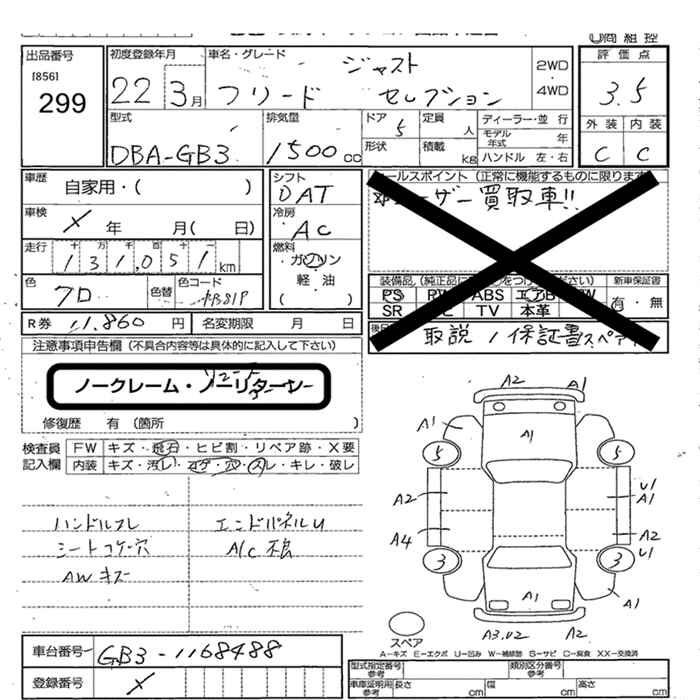 出品番号 初度登録年月 車名・グレード 評価点
[856]
299
22 3月 フリード ジャスト セレクション 2WD・4WD 3.5
外装 内装
C C
型式 排気量 ドア 定員 人 ディーラー・並行
DBA-GB3 1500cc 5 モデル年式 年
形状 積載 kg ハンドル 左・右
車歴 自家用・( ) シフト DAT
セールスポイント(正常に機能するものに限ります
ユーザー買取車!!
車検 X 年 月( 日) 冷房 AC
走行 十万千百十一
131,051 km
燃料 ガソリン 軽・油 ( )
色 クロ 色替 色コード NB81P
装備品 新車保証書
PS PW ABS エアB 有・無
SR TV 本革
取説 / 保証書 スペア
R券 11,860 円 名変期限 月 日
注意事項申告欄(不具合内容等は具体的に記入して下さい)
ノークレーム・ノーリターン
修復歴 有(箇所 )
検査員記入欄 FW キズ・飛石・ヒビ割・リペア跡・X要
内装 キズ・汚レ・コゲ・穴・スレ・キレ・破レ
ハンドルスレ エンドパネルU
シートコゲ穴 A/C不良
AWキズ
A2 A1
A1 A1
5 5
A2 U1 A1
A4 A2 U1
3 3
A1 A1
スペア A3,U2 A2
A-キズ E-エクボ U-凹み W-補修跡 S-サビ C-腐食 XX-交換済
車台番号 GB3-1168488
登録番号 X
型式指定番号 参考 類別区分番号 参考
車庫証明用 参考 長さ cm 幅 cm 高さ cm